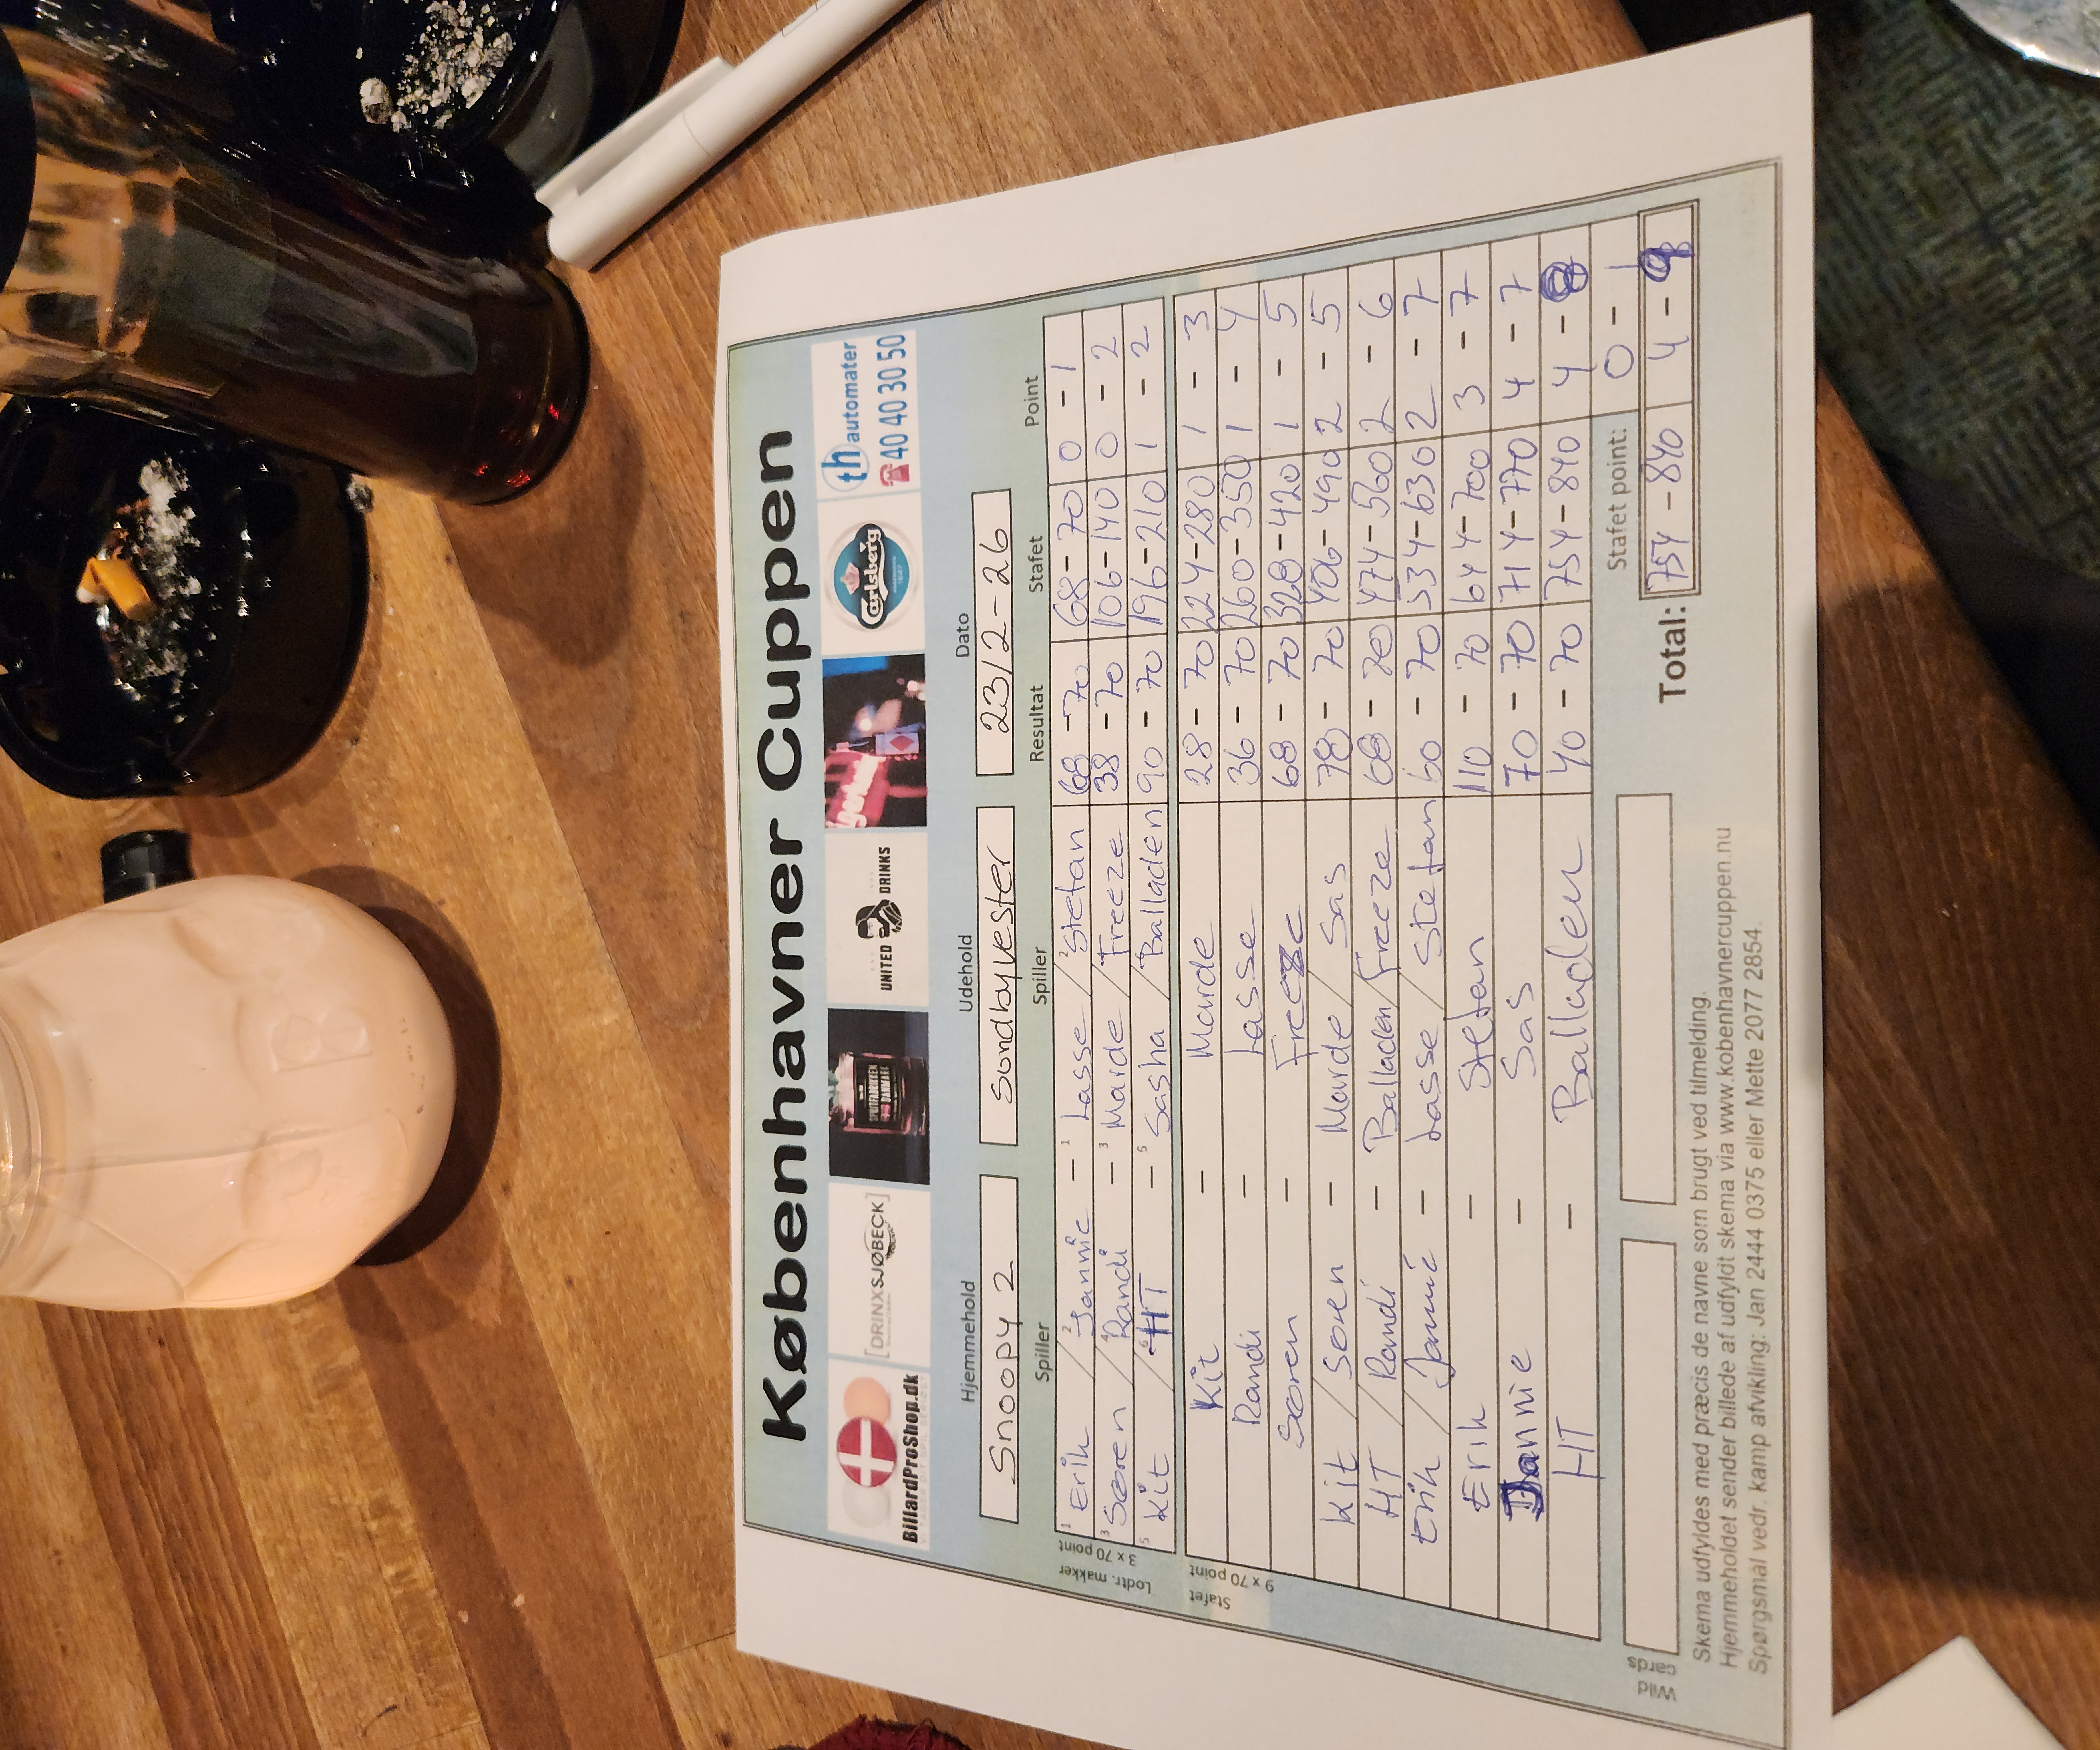 Københavner Cuppen
BillardProShop.dk
[DRINXSJØBECK]
SPORTSBRØNDEN
UNITED DRINKS
Carlsberg
th automater
☎ 40 40 30 50
Hjemmehold Udehold Dato
Snoopy 2 Sondbyvester 23/2-26
Spiller Spiller Resultat Stafet Point
Lodtr. makker 3 x 70 point
1 Erik / 2 Jannie - 1 Lasse / 2 Stefan 68 - 70 68 - 70 0 - 1
3 Søren / 4 Randi - 3 Marde / 4 Freeze 38 - 70 106 - 140 0 - 2
5 Kit / 6 HT - 5 Sasha / Balladen 90 - 70 196 - 210 1 - 2
Stafet 9 x 70 point
Kit - Marde 28 - 70 224 - 280 1 - 3
Randi - Lasse 36 - 70 260 - 350 1 - 4
Søren - Freeze 68 - 70 328 - 420 1 - 5
Kit / Søren - Marde / Sas 78 - 70 406 - 490 2 - 5
HT / Randi - Balladen / Freeze 68 - 70 474 - 560 2 - 6
Erik / Jannie - Lasse / Stefan 60 - 70 534 - 630 2 - 7
Erik - Stefan 110 - 70 644 - 700 3 - 7
Jannie - Sas 70 - 70 714 - 770 4 - 7
HT - Balladen 40 - 70 754 - 840 4 - 8
Stafet point: 0 - 1
Wild cards
Total: 754 - 840 4 - 9
Skema udfyldes med præcis de navne som brugt ved tilmelding.
Hjemmeholdet sender billede af udfyldt skema via www.kobenhavnercuppen.nu
Spørgsmål vedr. kamp afvikling: Jan 2444 0375 eller Mette 2077 2854.